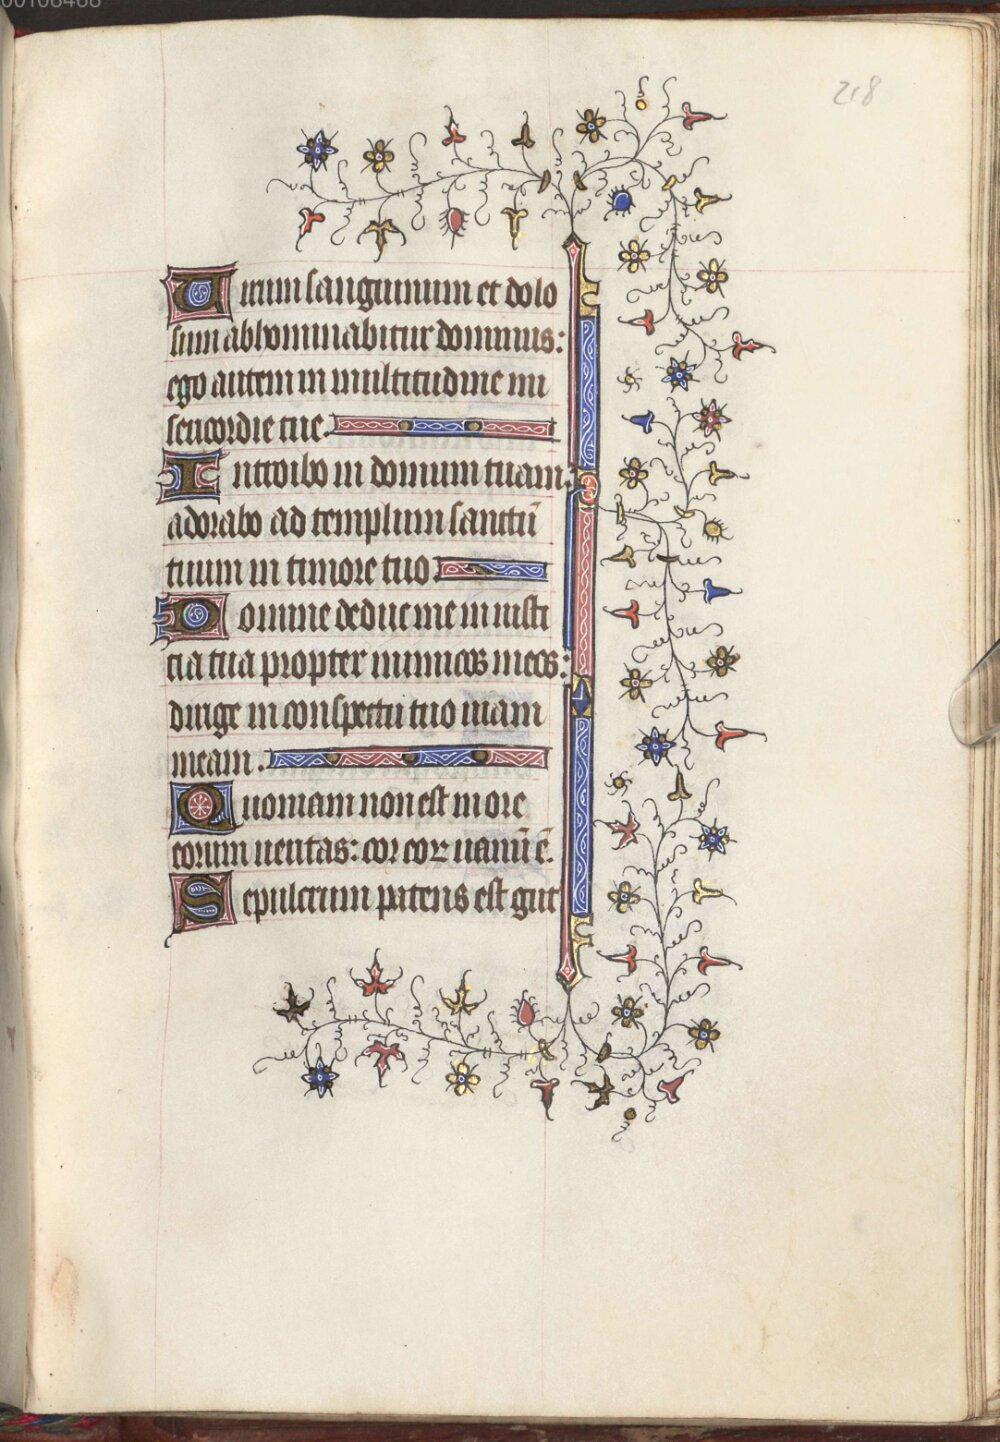 00108468
218
Uirum sanguinum et dolo
sum abhominabitur dominus:
ego autem in multitudine mi
sericordie tue.
Introibo in domum tuam:
adorabo ad templum sanctū
tuum in timore tuo
Domine deduc me in iusti
cia tua propter inimicos meos:
dirige in conspectu tuo uiam
meam.
Quoniam non est in ore
eorum ueritas: cor eoꝝ uanū ē.
Sepulcrum patens est gut